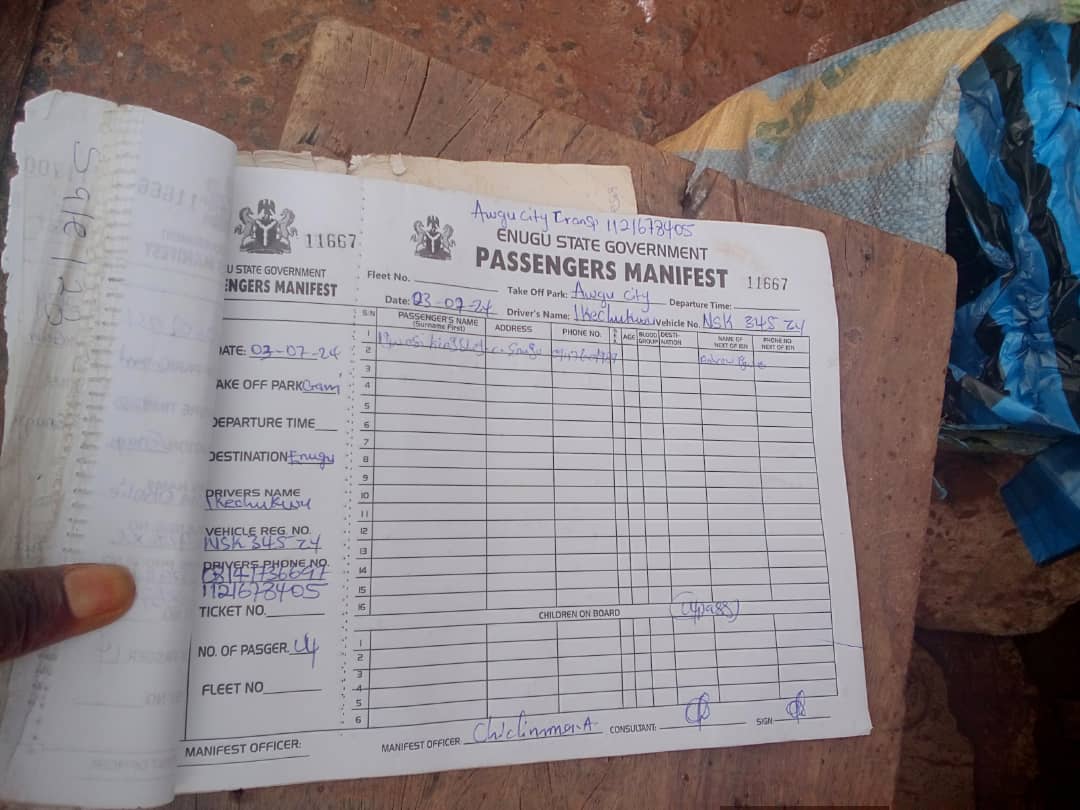 Sale
11667
U STATE GOVERNMENT
ENGERS MANIFEST
DATE: 03-07-24
AKE OFF PARK
DEPARTURE TIME
DESTINATION Enugu
DRIVERS NAME
Ikechukwu
VEHICLE REG. NO.
NSK 345 ZY
DRIVERS PHONE NO.
08141736697
1121678405
TICKET NO.
NO. OF PASGER. 4
FLEET NO
MANIFEST OFFICER:
Awgu City Transp 1121678405
ENUGU STATE GOVERNMENT
PASSENGERS MANIFEST 11667
Fleet No. Take Off Park: Awgu City Departure Time:
Date: 03-07-24 Driver's Name: Ikechukwu Vehicle No. NSK 345 ZY
S/N PASSENGER'S NAME (Surname First) ADDRESS PHONE NO. AGE BLOOD GROUP DESTI-NATION NAME OF NEXT OF KIN PHONE NO NEXT OF KIN
1
2
3
4
5
6
7
8
9
10
11
12
13
14
15
16
CHILDREN ON BOARD (4pass)
1
2
3
4
5
6
MANIFEST OFFICER Chidinma.A. CONSULTANT: SIGN